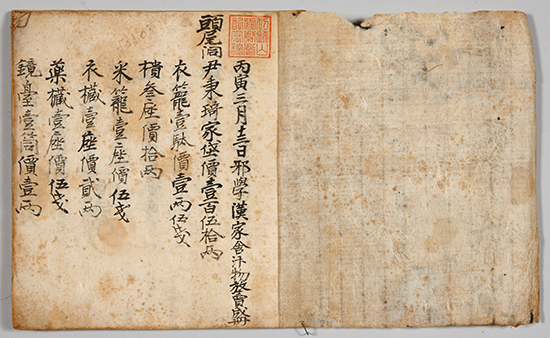 丙寅三月十三日邪學漢家舍汁物放賣成冊
頭尾洞尹秉琦家垈價壹百伍拾兩
衣籠壹馱價壹兩伍戔
樻叄座價拾兩
采籠壹座價伍戔
衣欌壹座價貳兩
藥欌壹座價伍戔
鏡臺壹箇價壹兩